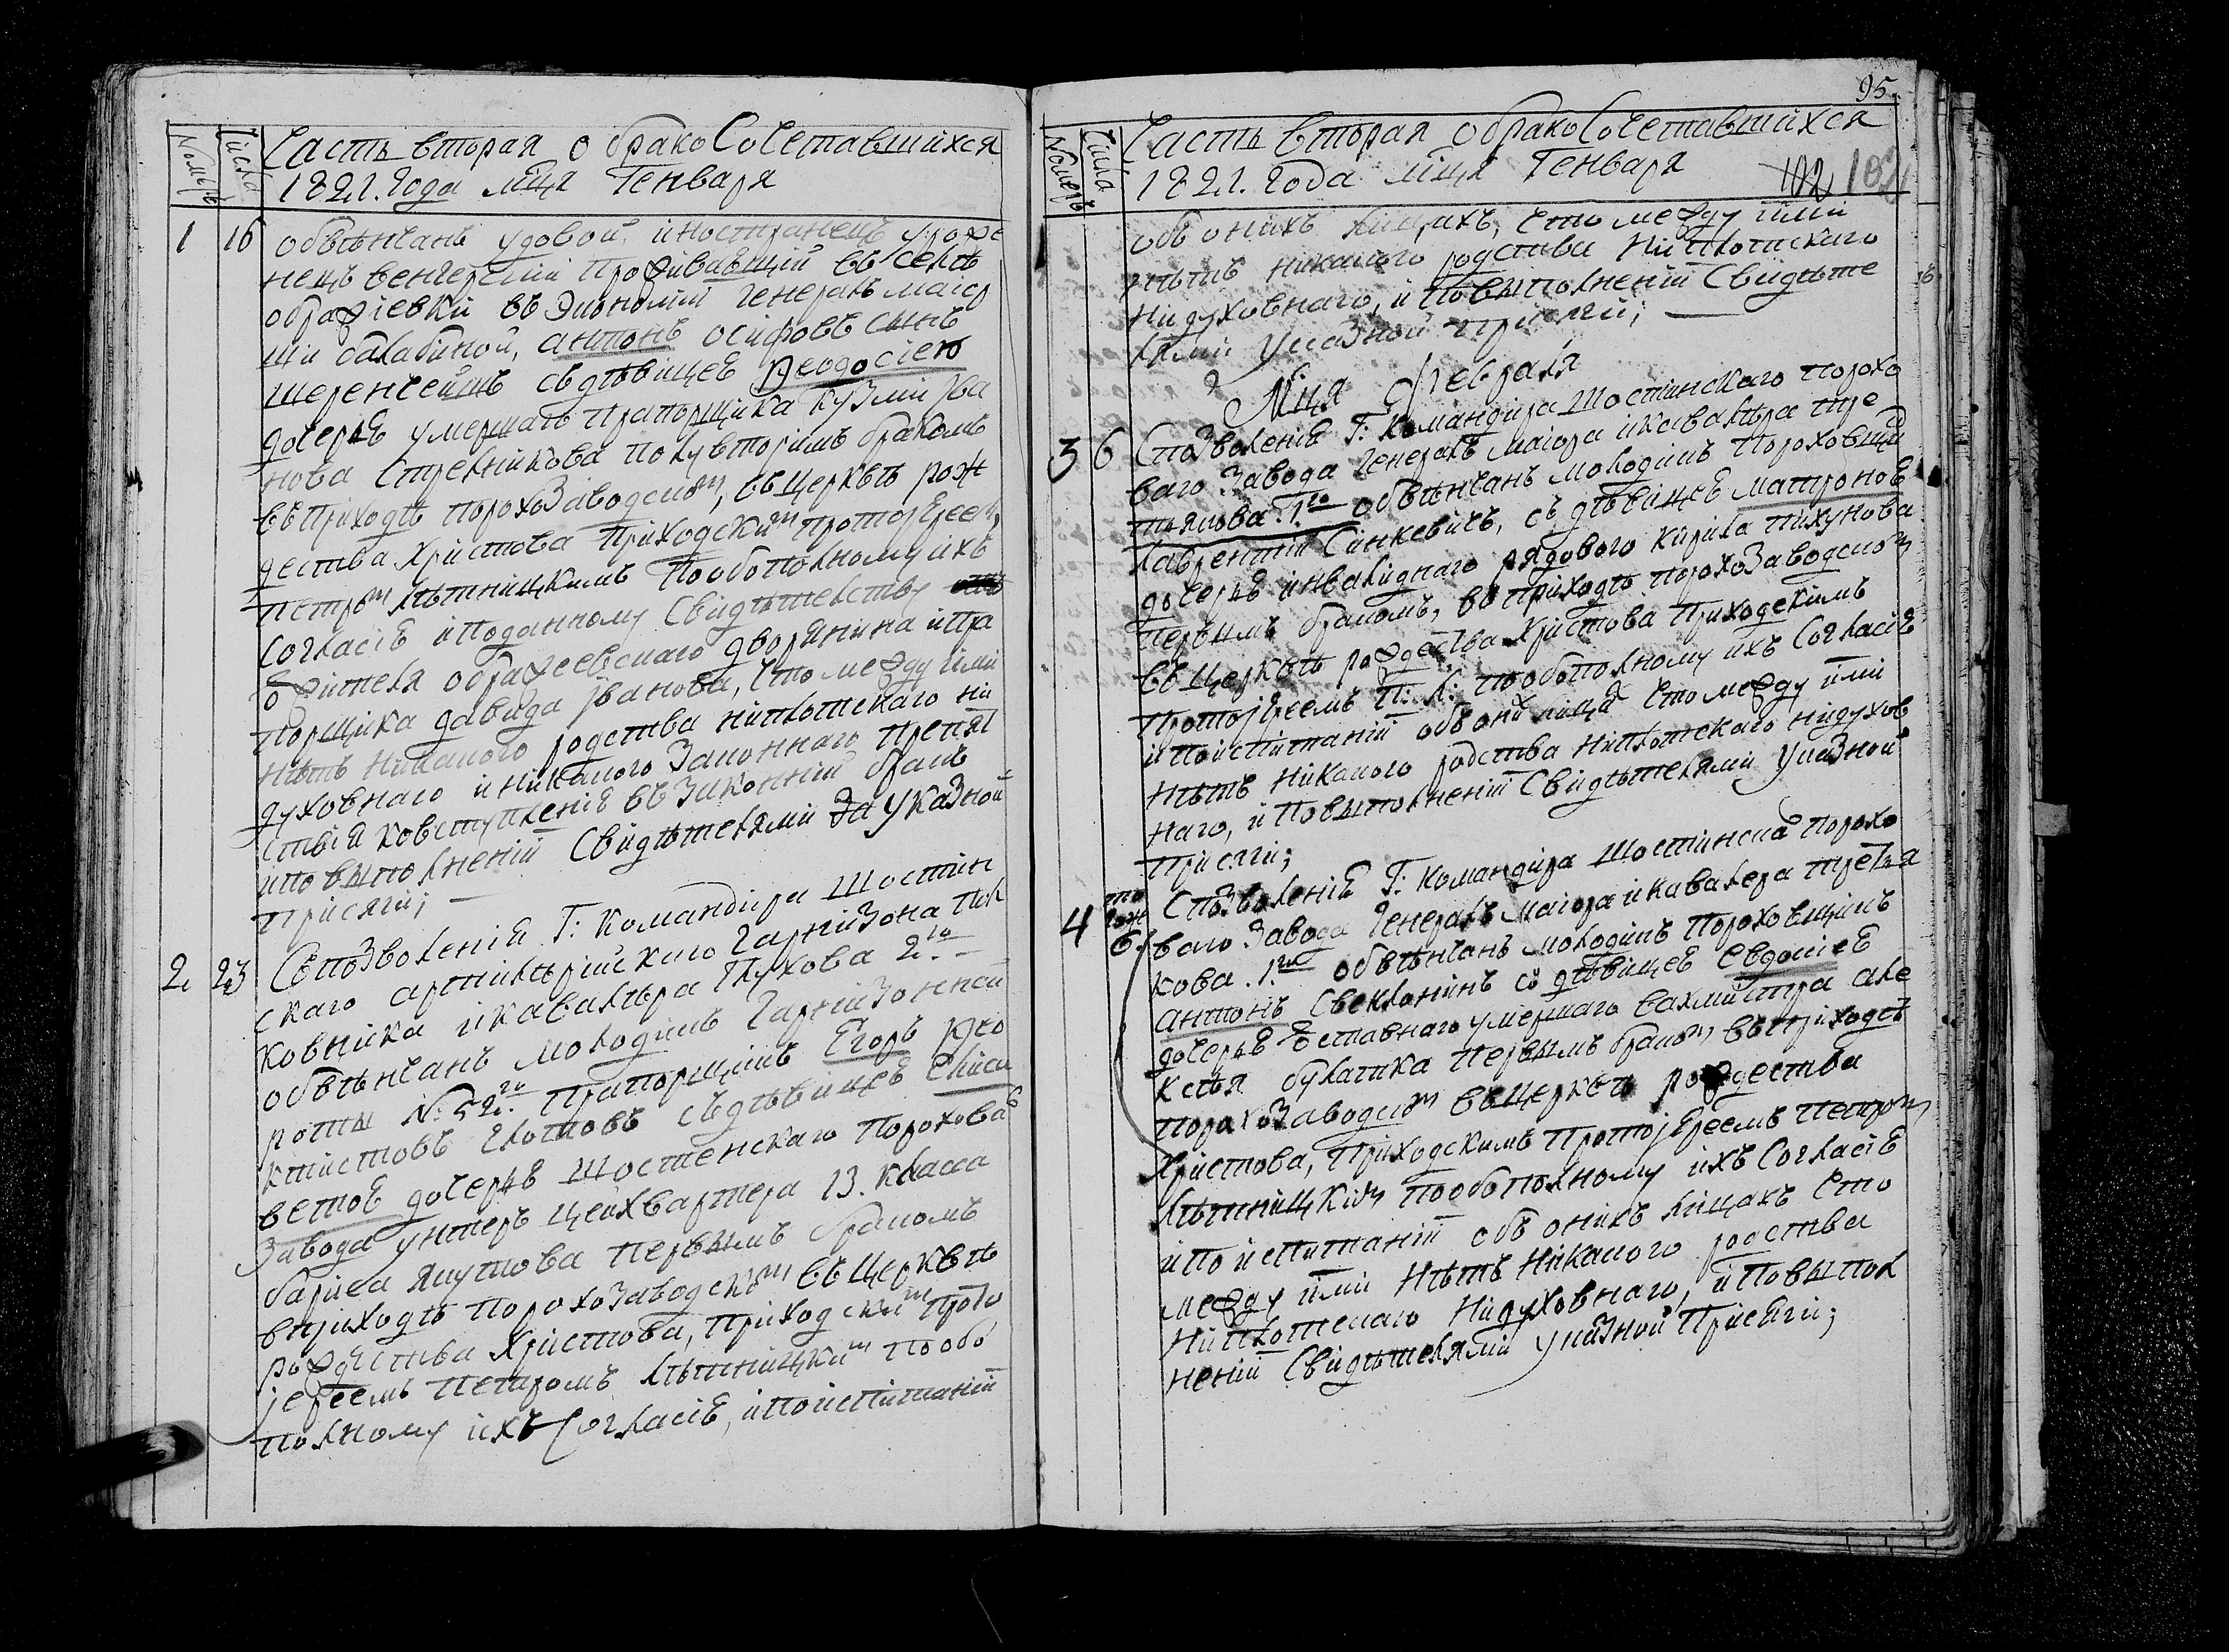 Номеръ
Числа
Часть вторая о брако Сочетавшихся
1821. года мца Генваря
1 16 обвѣнчанъ удовой иностранецъ уроже
нецъ венгерскій проживающій въ селѣ
ображіевки въ Экономіи генералъ маіор
ши балабиной, антонъ осифовъ сынъ
шеренчейшъ съ дѣвицеѣ Ѳеодосіею
дочерьѣ умершагъ Прапорщика Кузмы Ива
нова Стрелникова полувторимъ бракомъ
въ приходѣ порохозаводском, въ церквѣ рож
дества Христова Приходским протоіереем
петром лѣтницкимъ По обополному ихъ
Согласіѣ и поданному Свидѣтелству
б жителя ображеевскаго дворянина и пра
порщика давида Іванова, что между іми
нѣтъ никакого родства ниплотскаго ни
духовнаго и никакого Законнаго препят
ствія ковступленіѣ въ Законній бракъ
и по выполненіи Свидѣтелями За указной
Присяги;
2. 23 Съ позволеніѣ Г: Командира Шостин
скаго артилерійскаго гарнізона Пол
ковника и кавалѣра Глухова 2.го
обвѣнчанъ молодикъ гарнізонной
роты №: 52.й прапорщикъ Егоръ Ѳео
ктистовъ глотовъ съ дѣвицеѣ Елиса
ветоѣ дочерьѣ шостенскаго порохова
завода унтеръ цейхвартера 13. класса
бариса якутова первымъ бракомъ
вприходѣ порохозаводском въ церквѣ
рождества Христова, приходским прото
іереемъ петромъ лѣтницким по обо
полному ихъ Согласіѣ, и по испитаніи
95.
Номеръ
Числа
Часть вторая о брако Сочетавшихся
1821. года мца Генваря
102 102
объ онихъ лицахъ, что между іми
нѣтъ никакого родства Ниплотскаго
Нидуховнаго, и по выполненіи Свидѣте
лями указной присяги;
Мца февраля
3 6 С позволеніѣ Г: Командира шостинскаго порохо
ваго Завода генералъ маіора и кавалѣра тре
тьякова 1.го обвѣнчанъ молодикъ пороховщик
лаврентій Синкевичъ, съ дѣвицеѣ матроноѣ
дочерьѣ инвалиднаго рядового кирила пихунова
первымъ бракомъ, въ приходѣ порохозаводском
въ церквѣ рождества Христова приходскимъ
протоіереемъ П: Л: по обополному ихъ Согласіѣ
и по испитаніи объ оних лицах что между іми
нѣтъ никакого родства ниплотскаго нидухов
наго, и по выполненіи Свидѣтелями указной
присяги;
4 то гож 6. С позволеніѣ Г: командира шостинска порохо
ваго завода генералъ маіора и кавалера третья
кова. 1.го обвѣнчанъ молодикъ пороховщикъ
антонъ Свеклонинъ съ дѣвицеѣ Евдокіеѣ
дочерьѣ ѣставнаго умершаго вахмистра але
ксѣя булатка первымъ браком въ приходѣ
порохозаводском въ церквѣ рождества
Христова, приходскимъ протоіереемъ петром
лѣтницким по обополному ихъ Согласіѣ
и по испитаніи объ онихъ лицахъ что
между іми нѣтъ никакого родства
ниплотскаго нидуховнаго, и по выпол
неніи Свидѣтелями указной присяги;